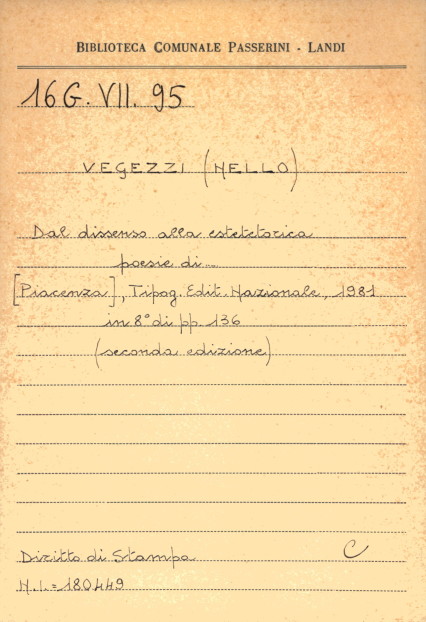 BIBLIOTECA COMUNALE PASSERINI - LANDI
16 G. VII. 95
VEGEZZI (NELLO)
Dal dissenso alla estetetorica
poesie di...
[Piacenza], Tipog. Edit. Nazionale, 1981
in 8° di pp. 136
(seconda edizione)
Diritto di Stampa
C
N.I. = 180449